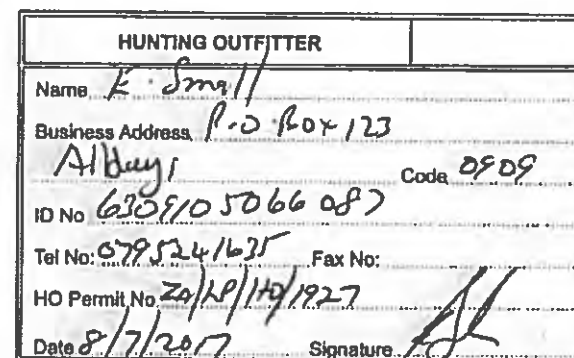 HUNTING OUTFITTER
Name K. Small
Business Address P.O Box 123
Code 0909
ID No 630910 5066 087
Tel No: 0795241635 Fax No:
HO Permit No ZA/LP/HO/1927
Date 8/7/2017 Signature